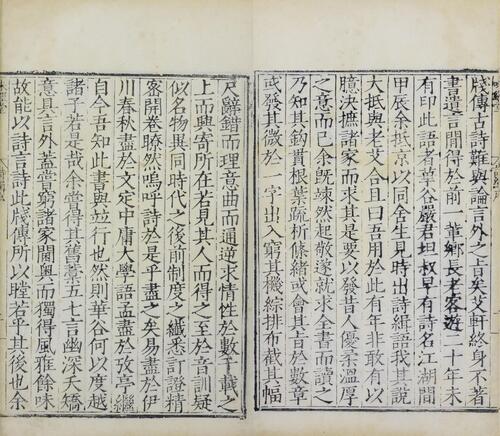 牋傳古詩難與論言外之旨矣艾軒終身不著
書遺言聞得於前一輩鄉長老客遊二十年未
有印此語者華谷嚴君坦叔早有詩名江湖間
甲辰余抵京以同舍生見時出詩緝語我其說
大抵與老艾合且曰吾用於此有年非敢有以
臆決摭諸家而求其是要以發昔人優柔溫厚
之意而已余既竦然起敬遂就求全書而讀之
乃知其鈎貫根葉疏析條緒或會其旨於數章
或發其微於一字出入窮其機綜排布截其幅
尺辭錯而理意曲而通逆求情性於數千載之
上而興寄所在若見其人而得之至於音訓疑
似名物異同時代之後前制度之纎悉訂證精
密開卷瞭然嗚呼詩於是乎盡之矣易盡於伊
川春秋盡於文定中庸大學語孟盡於攷亭繼
自今吾知此書與竝行也然則華谷何以度越
諸子若是哉余嘗得其舊藁五七言幽深夭矯
意具言外蓋嘗窮諸家閫奧而獨得風雅餘味
故能以詩言詩此牋傳所以瞠若乎其後也余